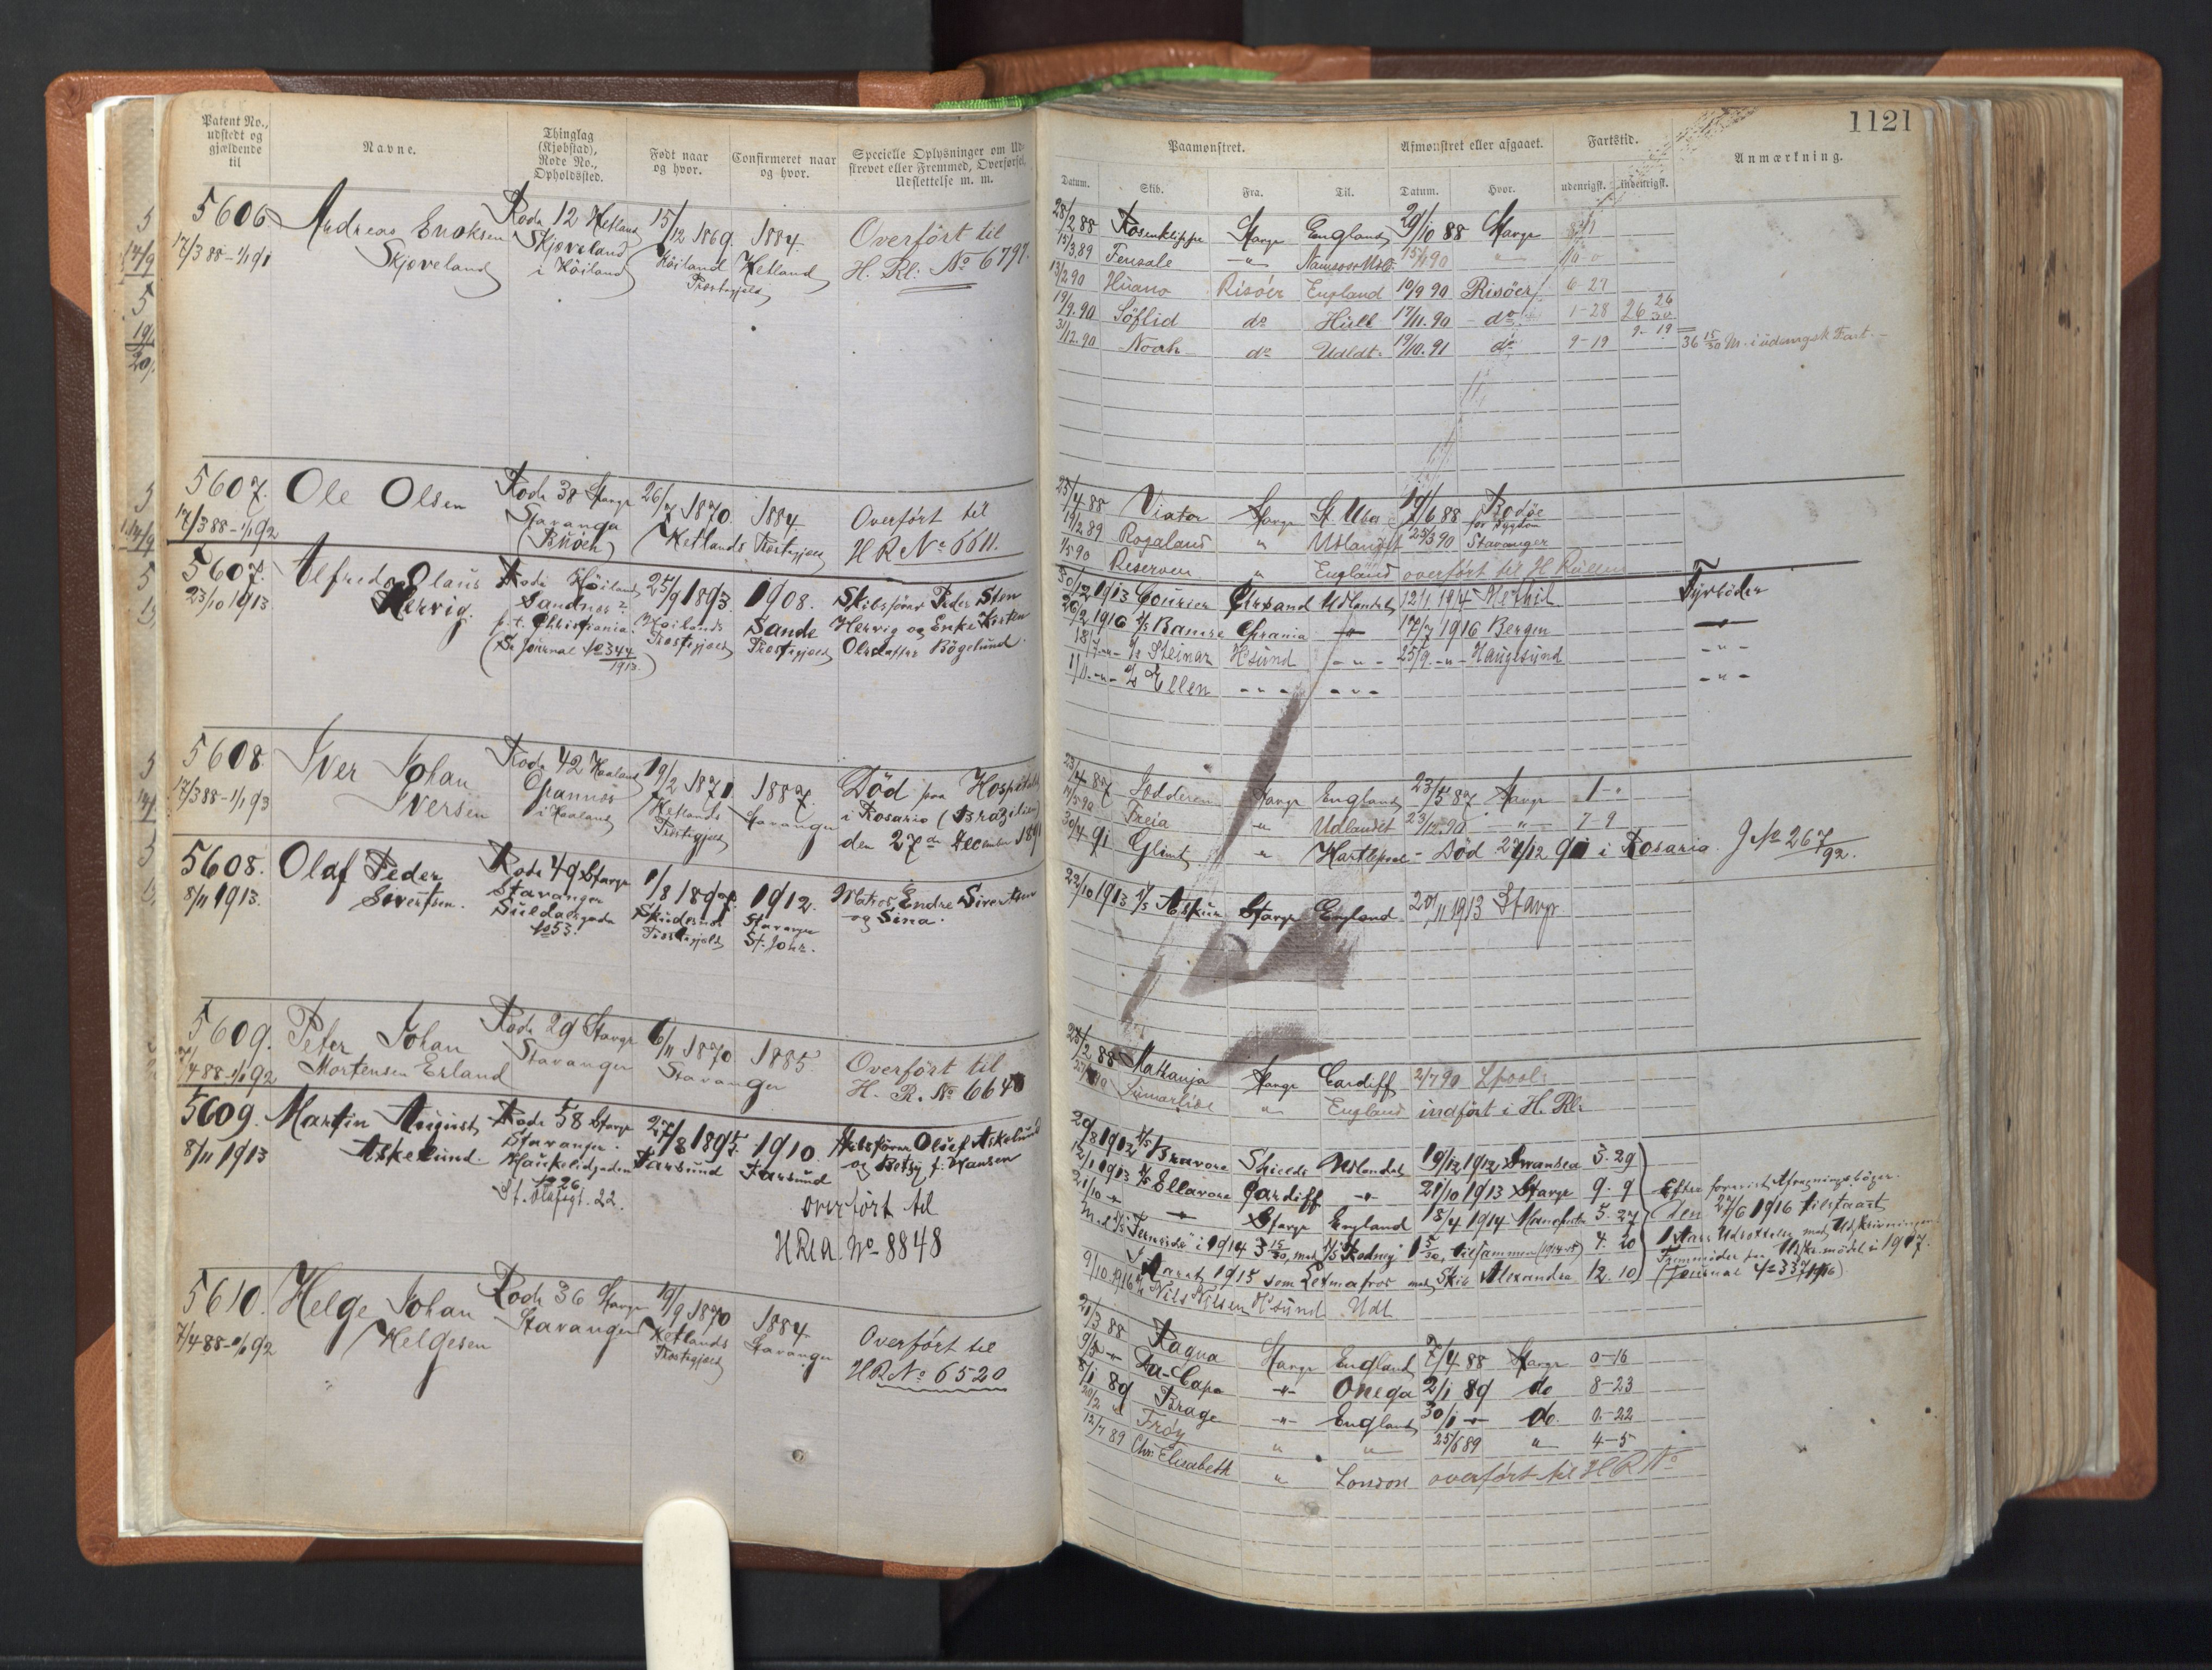 Patent No.,
udstedt og
gjældende
til
Navne.
Thinglag
(Kjøbstad),
Rode No.,
Opholdssted.
Født naar
og hvor.
Confirmeret naar
og hvor.
Specielle Oplysninger om Ud-
skrevet eller Fremmed, Overførsel,
Udslettelse m. m.
5606
17/3 88 - 1/1 91
Andreas Enoksen
Skjæveland
Rode 12 Hetland
Skjæveland
i Höiland
15/12 1869.
Höiland
Præstegjeld
1884
Hetland
Overført til
H. Rl. No 6797.
5607.
17/3 88 - 1/1 92
Ole Olsen
Rode 38 Stavgr
Stavanger
26/7 1870.
Hetlands Præstegjeld
1884
Overført til
H R No 6611.
5607.
23/10 1913
Alfred Olaus
Hervig.
Rode Höiland
Sandnes
p. t. Christiania.
(Se Journal No 344
1913.)
25/9 1893.
Höilands
Præstegjeld
1908.
Sande
Præstegjeld
Skibsfører Peder Sten
Hervig og Enke Kirsten
Bögelund
5608
17/3 88 - 1/1 93
Iver Johan
Iversen
Rode 42 Haaland
i Haaland
19/2 1871.
Hetlands
Præstegjeld
1887.
Stavanger
Död paa Hospitalet
i Rosario (Brazilien)
den 27de December 1891
5608.
8/11 1913.
Olaf Peder
Sivertsen.
Rode 49 Stavgr
Stavanger
No 53.
1/8 1897.
Skudenes
Præstegjeld
1912.
Stavanger
St. Joh.
Matros Endre Sivertsen
og Sina.
5609.
7/4 88 - 1/1 92
Peter Johan
Mortensen Erland
Rode 29 Stavgr
Stavanger
6/11 1870
Stavanger
1885.
Overført til
H. R. No 6640
5609.
8/11 1913
Martin August
Askelund.
Rode 58 Stavgr
Stavanger.
Haukelidgaden
No 26
St. Olafsgt. 22.
27/8 1895.
Farsund
1910.
Farsund
Skibsfører Oluf Askelund
og Betsy f. Hansen
overført til
HRlA No 8848
5610.
7/4 88 - 1/1 92
Helge Johan
Helgesen
Rode 36 Stavgr
Stavanger
19/9 1870
Hetlands
Præstegjeld
1884
Stavanger
Overført til
HR No 6520
1121
Paamønstret.
Afmønstret eller afgaaet.
Fartstid.
Anmærkning.
Datum.
Skib.
Fra.
Til.
Datum.
Hvor.
udenrigsk.
indenrigsk.
28/2 88 Rosenklippe Stavgr England 29/10 88 Stavgr
15/3 89 Fensale
13/2 90 Huano Risöer England 10/9 90 Risöer 6-27
19/9.90 Söflid do Hull 17/11.90 do 1-28 26 26/30
31/12.90 Noah do Udldt. 19/10.91 do 9-19 9-19
36 15/30 M. i udenrigsk Fart.
25/4 88 Viator Stavgr St. Ubes 19/6 88 Bodöe
19/2 89 Rogaland " Udlandet 25/3 90 Stavanger
1/5 90 Reserven " England overført til H Rullen
30/12 1913 Courier Chrsand Udlandet 12/1 1914 Methil Fyrböder
26/2 1916 D/S Bamse Chrania -"- 17/7 1916 Bergen -"-
18/7 -"- D/S Steinar Hsund -"- 25/9 -"- Haugesund -"-
11/11 -"- D/S Ellen -"- -"- -"-
23/4 87 Jödderen Stavgr England 23/5 87 Stavgr 1-"
14/5 90 Freia " Udlandet 23/12.90 " 7-9
30/4 91 Glimt " Hartlepool - Död 27/12 91 i Rosario J No 267/92.
22/10 1913 D/S Askur Stavgr England 20/11 1913 Stavgr
25/2 88 Mathanja Stavgr Cardiff 2/7 90 Lpool
Sumarlide " England indført i H. Rl.
29/8 1912 D/S Bravore Shields Udlandet 19/12 1912 Swansea 3.29
12/1 1913 D/S Ellavore Cardiff -"- 21/10 1913 Stavgr 9.9
21/10 -"- -"- Stavgr England 18/4 1914 5.27
i 1914 3 15/30, med "Rodney" 1 5/30, tilsammen 4.20
Aaret 1915 som Letmatros med Skib Alexandra 12.10
9/10 1916 Nils Nilsen Hsund Udl
den 27/6 1916 tilstaaet
1 Aars Udsættelse med Udskrivningen.
1917.
(Journal No 337/1916)
21/3 88 Ragna Stavgr England 7/4 88 Stavgr 0-16
9/5 -"- Da-Capo -"- Onega 2/1 89 do 8-23
8/1 89 Brage -"- England 30/1 -"- do. 0-22
20/2 Fröy " " 25/6 89 " 4-5
12/7 89 Chr. Elisabeth " London overført til H R No